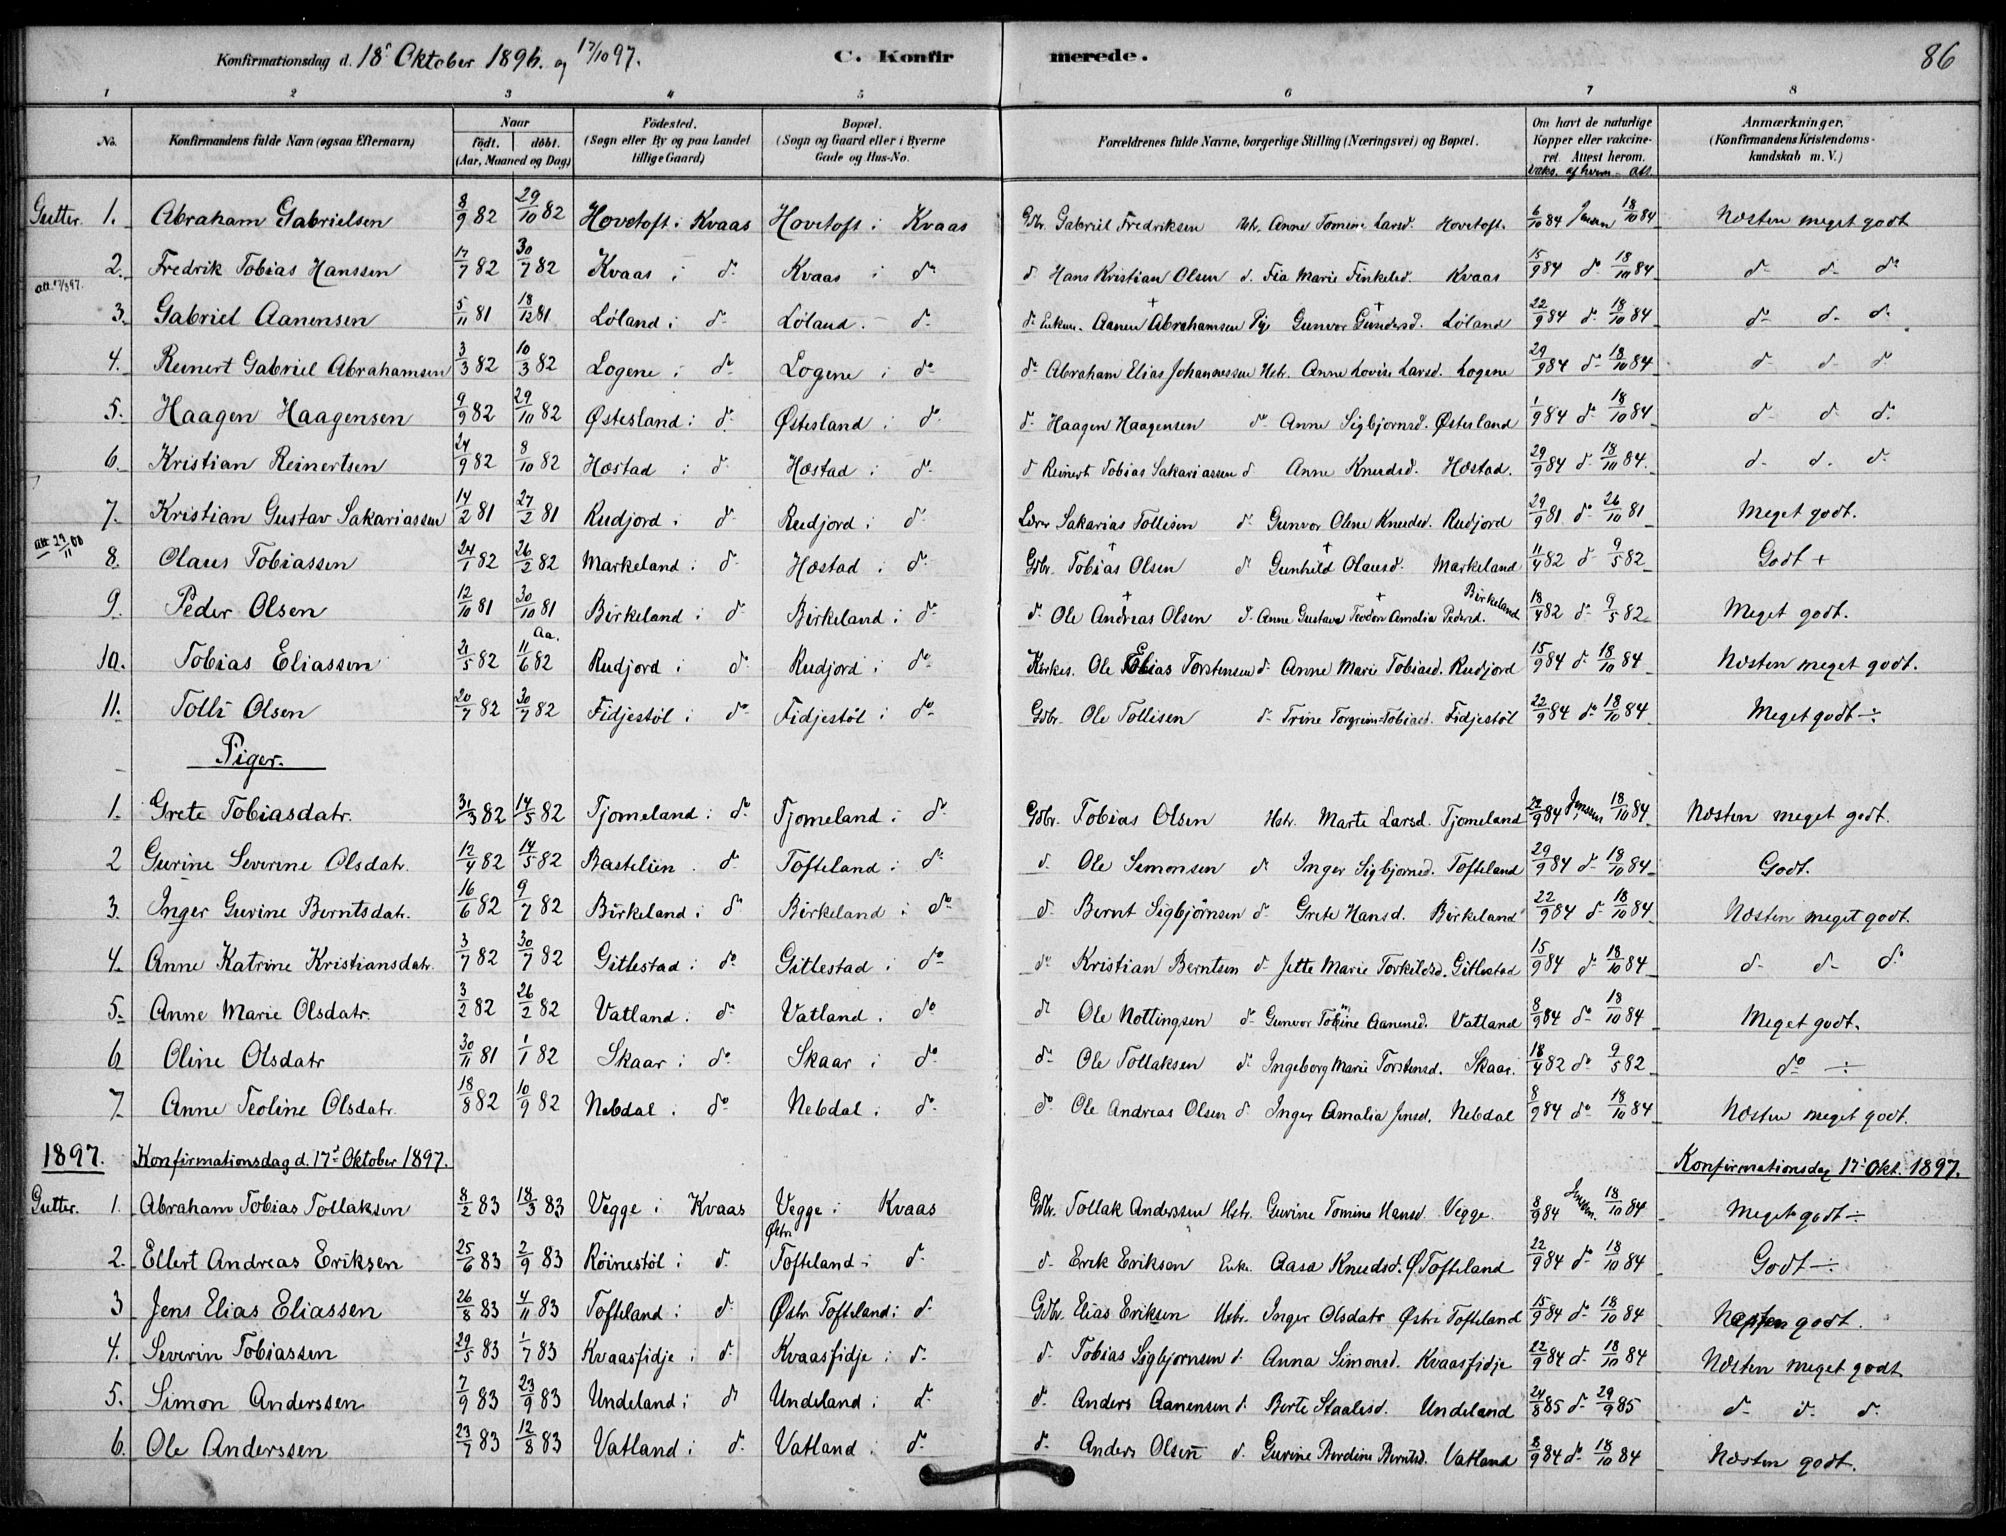 Konfirmationsdag d. 18. Oktober 1896. og 17/10 97. C. Konfirmerede. 86
1 2 3 4 5 6 7 8
No. Konfirmandens fulde Navn (ogsaa Efternavn) Naar födt. döbt. (Aar, Maaned og Dag) Födested. (Sogn eller By og paa Landet tillige Gaard) Bopæl. (Sogn og Gaard eller i Byerne Gade og Hus-No. Forældrenes fulde Navne, borgerlige Stilling (Næringsvei) og Bopæl. Om havt de naturlige Kopper eller vakcineret Attest herom. vaks. af hvem - att. Anmærkninger. (Konfirmandens Kristendomskundskab m. V.)
Gutter. 1. Abraham Gabrielsen 8/9 82 29/10 82 Hovetoft i Kvaas Hovetoft i Kvaas Gbr. Gabriel Fredriksen Hstr. Anne Tomine Larsd. Hovetoft. 6/10 84 Jensen 18/10 84 Næsten meget godt
2. Fredrik Tobias Hanssen 17/7 82 30/7 82 Kvaas i do Kvaas i do d. Hans Kristian Olsen d. Fia Marie Tinkelsd. Kvaas 15/9 84 do 18/10 84 do do do
att. 17/8 97.
3. Gabriel Aanensen 5/11 81 18/12 81 Løland i do Løland do do Enkem. Aanen + Abrahamsen Pige Gunvor Gundersd. + Løland 22/9 84 do 18/10 84 do do do
4. Reinert Gabriel Abrahamsen 3/3 82 10/3 82 Logene i do Logene i do do Abraham Elias Johannessen Hstr. Anne Lovise Larsd. Logene 29/9 84 do 18/10 84 do do do
5. Haagen Haagensen 9/9 82 29/10 82 Østesland i do Østesland i do do Haagen Haagensen do Anne Sigbjornsd. Østesland 1/9 84 do 18/10 84 do do do
6. Kristian Reinertsen 24/9 82 8/10 82 Hæstad i do Hæstad i do d Reinert Tobias Sakariassen d Anne Knudsd. Hæstad. 29/9 84 do 18/10 84. do do do
7. Kristian Gustav Sakariassen 14/2 81 27/2 81 Rudjord i do Rudjord i do Lærer Sakarias Tollisen do Gunvor Oline Knudsd. Rudjord 29/9 81 do 26/10 81 Meget godt.
att 29/11 00
8. Olaus Tobiassen 24/1 82 26/2 82 Markeland i do Hæstad i do Gbr. Tobias + Olsen do Gunhild + Olausd. Markeland 11/4 82 do 9/5 82 Godt +
9. Peder Olsen 12/10 81 30/10 81 Birkeland i do Birkeland i do do Ole Andreas + Olsen d. Anne Gustava Teodor + Amalia Pedersd. Birkeland 18/4 82 do 9/5 82 Meget godt.
10. Tobias Eliassen 21/5 82 Aa. 11/6 82 Rudjord i do Rudjord i do Kirkes. Ole Elias Torstensen do Anne Marie Tobiasd. Rudjord 15/9 84 do 18/10 84 Næsten meget godt.
11. Tolli Olsen 20/7 82 30/7 82 Fidjestøl i do Fidjestøl i do Gbr. Ole Tollisen do Trine Torgrim-Tobiasd. Fidjestøl 22/9 84 do 18/10 84 Meget godt ÷
Piger.
1. Grete Tobiasdatr. 31/3 82 14/5 82 Tjomeland i do Tjomeland i do Gdbr. Tobias Olsen Hstr. Marte Larsd. Tjomeland 22/9 84 Jensen 18/10 84 Næsten meget godt.
2 Gurine Severine Olsdatr. 12/4 82 14/5 82 Bastelien do Tofteland i do d. Ole Simonsen do Inger Sigbjornsd. Tofteland 29/9 84 do 18/10 84 Godt.
3. Inger Gurine Berntsdatr. 16/6 82 9/7 82 Birkeland i do Birkeland i do d. Bernt Sigbjørnsen do Grete Hansd. Birkeland 22/9 84 do 18/10 84 Næsten meget godt.
4. Anne Katrine Kristiansdatr. 3/7 82 30/7 82 Gitlestad i do Gitlestad i do do Kristian Berntsen do Jette Marie Torkildsd. Gitlestad 15/9 84 do 18/10 84 do do do
5. Anne Marie Olsdatr. 3/2 82 26/2 82 Vatland i do Vatland i do do Ole Nottingsen do Gunvor Tobine Aanensd. Vatland 8/9 84 do 18/10 84 Meget godt.
6 Oline Olsdatr 30/11 81 1/1 82 Skaar i do Skaar i do do Ole Tollaksen do Ingeborg Marie Torstensd. Skaar. 18/4 82 do 9/5 82 do ÷
7. Anne Teoline Olsdatr. 18/8 82 10/9 82 Nebdal i do Nebdal i do do Ole Andreas Olsen do Inger Amalia Jensd. Nebdal 8/9 84 do 18/10 84 Næsten meget godt.
1897. Konfirmationsdag d. 17d Oktober 1897. Konfirmationsdag 17d Okt. 1897.
Gutter. 1. Abraham Tobias Tollaksen 8/2 83 18/3 83 Vegge i Kvaas Vegge i Kvaas Gdbr. Tollak Anderssen Hstr. Gurine Tomine Hansd Vegge. 8/9 84 Jensen. 18/10 84 Meget godt ÷
2. Ellert Andreas Eriksen 25/6 83 2/9 83 Röinestöl i do Østre Tofteland i do do Erik Eriksen Enke. Aasa Knudsd. Ø. Tofteland 22/9 84 do 18/10 84 Godt ÷.
3 Jens Elias Eliassen 26/8 83 4/11 83 Tofteland i do Østre Tofteland i do Gdbr. Elias Eriksen Hstr. Inger Olsdatr Østre Tofteland 15/9 84 do 18/10 84 Næsten godt.
4. Severin Tobiassen 29/5 83 1/7 83 Kvaasfidje i do Kvaasfidje i do do Tobias Sigbjornsen d. Anna Simonsd. Kvaasfidje 22/9 84 do 18/10 84 Næsten meget godt
5. Simon Anderssen 7/9 83 23/9 83 Undeland i do Undeland i do do Anders Aanensen d. Berte Staalesd. Undeland 24/8 85 do 29/9 85 do do do
6. Ole Anderssen 23/7 83 12/8 83 Vatland i do Vatland i do do Anders Olsen d. Gurine Berdine Berntsd. Vatland 8/9 84 do 18/10 84 Næsten godt.